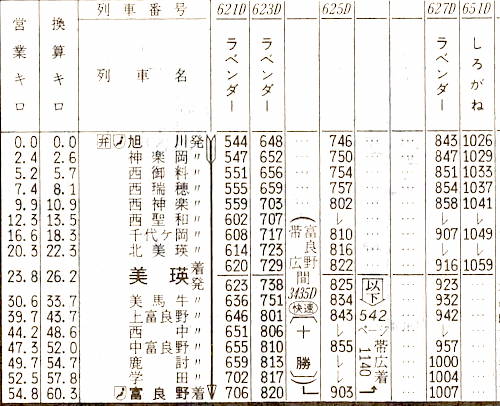 列車番号 621D 623D 625D 627D 651D
営業キロ 換算キロ 列車名 ラベンダー ラベンダー ラベンダー しろがね
0.0 0.0 弁 旭川発 544 648 … 746 … … 843 1026
2.4 2.6 神楽岡〃 547 652 … 750 … … 847 1029
5.2 5.7 西御料〃 551 656 … 754 … … 851 1034
7.4 8.1 西瑞穂〃 555 659 … 757 … … 854 1037
9.9 10.9 西神楽〃 559 703 … 802 … … 858 1041
12.3 13.5 西聖和〃 602 707 レ … … レ レ
16.6 18.3 千代ケ岡〃 608 717 810 … … 907 1049
20.3 22.3 北美瑛〃 614 723 816 … … レ レ
23.8 26.2 美瑛着 620 729 822 … … 916 1059
発 623 738 825 923 …
30.6 33.7 美馬牛〃 636 751 834 932 …
39.7 43.7 上富良野〃 646 801 843 942 …
44.2 48.6 西中〃 651 806 レ レ …
47.3 52.0 中富良野〃 655 810 855 957 …
49.7 54.7 鹿討〃 659 813 レ 1000 …
52.5 57.8 学田〃 702 817 レ 1004 …
54.8 60.3 富良野着 706 820 903 1007 …
(富良野
帯広間
3435D
快速
(十勝)
以下
542
ページ
帯広着
1140